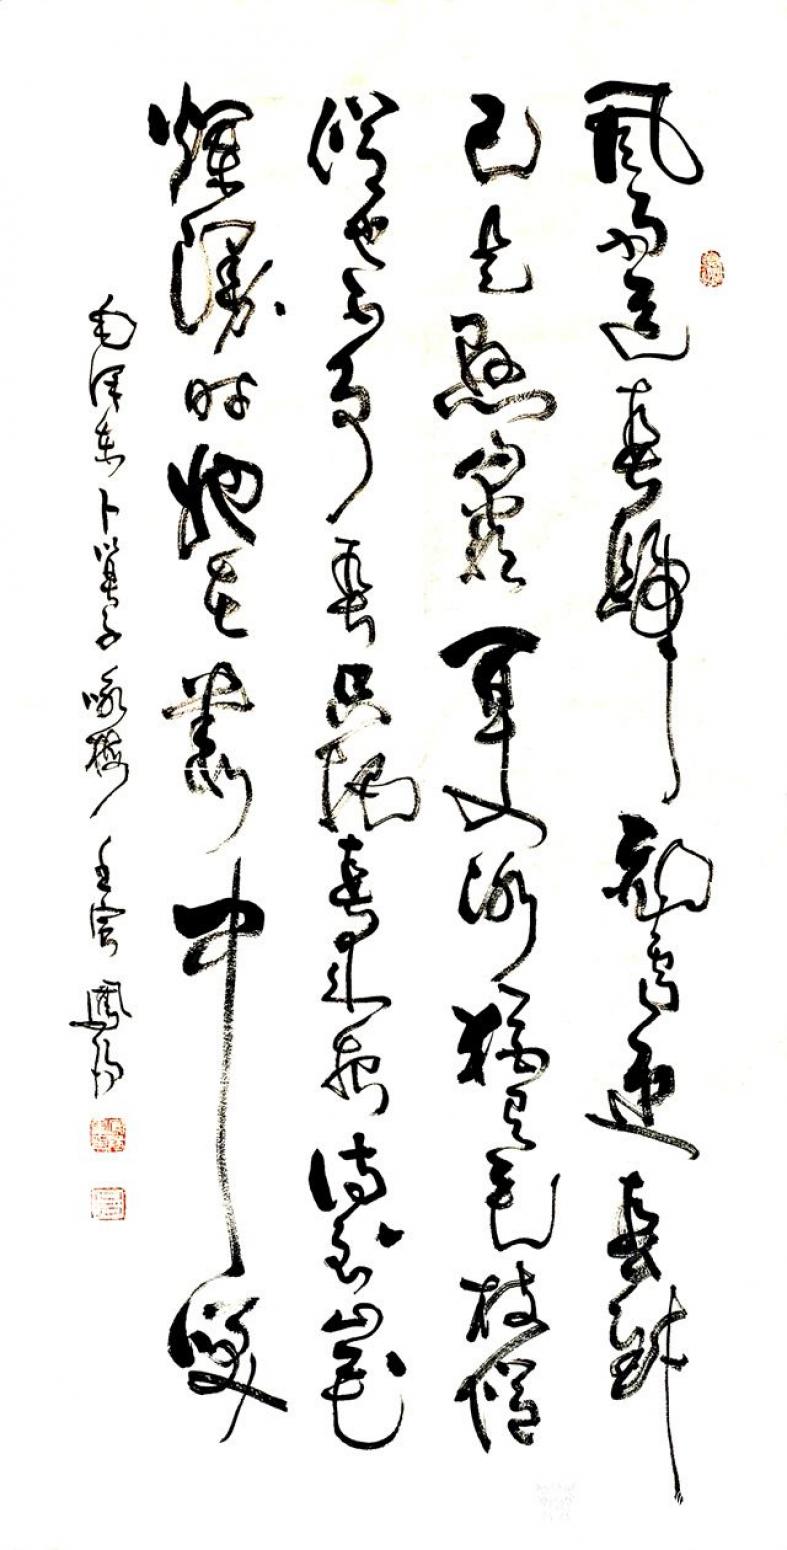 風雨送春歸飛雪迎春到
已是懸崖百丈冰猶有花枝俏
俏也不爭春只把春來報待到山花
爛漫時她在叢中笑
毛澤東卜算子咏梅壬寅鳳